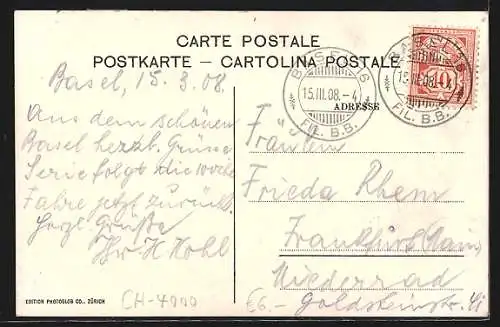 CARTE POSTALE
POSTKARTE - CARTOLINA POSTALE
BASEL 16
15.III.08.-4
FIL. B.B.
BASEL 16
15.III.08.-4
FIL. B.B.
10
ADRESSE
Basel, 15.3.08.
Aus dem schönen
Basel herzl. Grüsse
Serie folgt die
Fahre jetzt zurück.
Herzl. Grüße
Ihr H. Kohl
Fräulein
Frieda Rhem
Frankfurt (Main)
Niederrad
Goldsteinstr.
EDITION PHOTOGLOB CO., ZÜRICH
CH-4000
€6.-